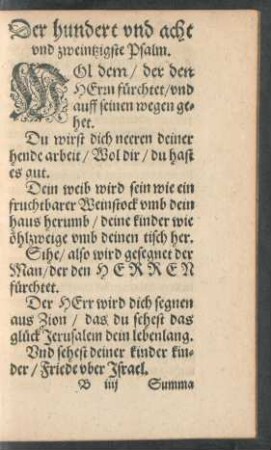 Der hundert vnd acht
vnd zweintzigste Psalm.
WOl dem / der den
HErrn fürchtet / vnd
auff seinen wegen ge-
het.
Du wirst dich neeren deiner
hende arbeit / Wol dir / du hast
es gut.
Dein weib wird sein wie ein
fruchtbarer Weinstock vmb dein
haus herumb / deine kinder wie
öhlzweige vmb deinen tisch her.
Sihe / also wird gesegnet der
Man / der den HERREN
fürchtet.
Der HErr wird dich segnen
aus Zion / das du sehest das
glück Jerusalem dein lebenlang.
Vnd sehest deiner kinder kin-
der / Friede vber Israel.
B iiij Summa